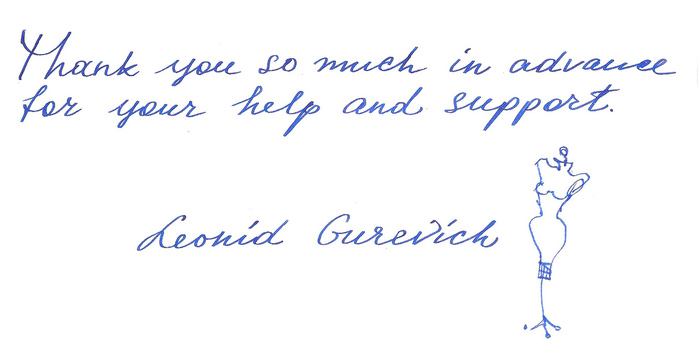 Thank you so much in advance
for your help and support.
Leonid Gurevich